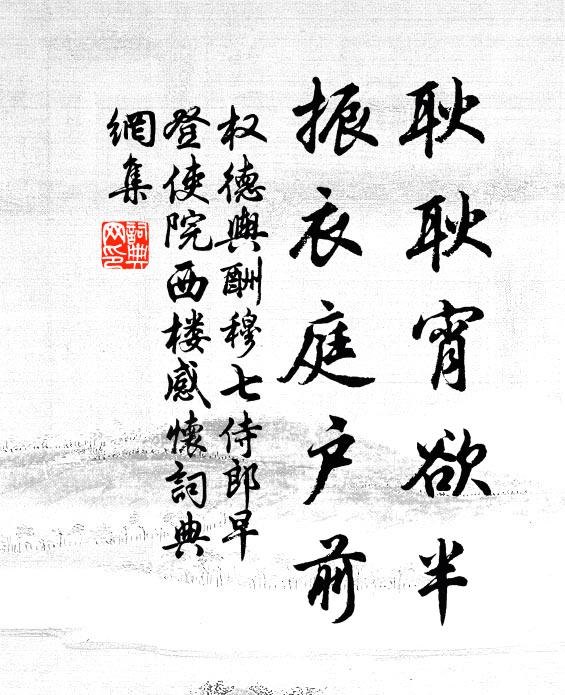 耿耿宵欲半
振衣庭户前
权德舆酬穆七侍郎早
登使院西楼感懷詞典
網集
詞典
网印